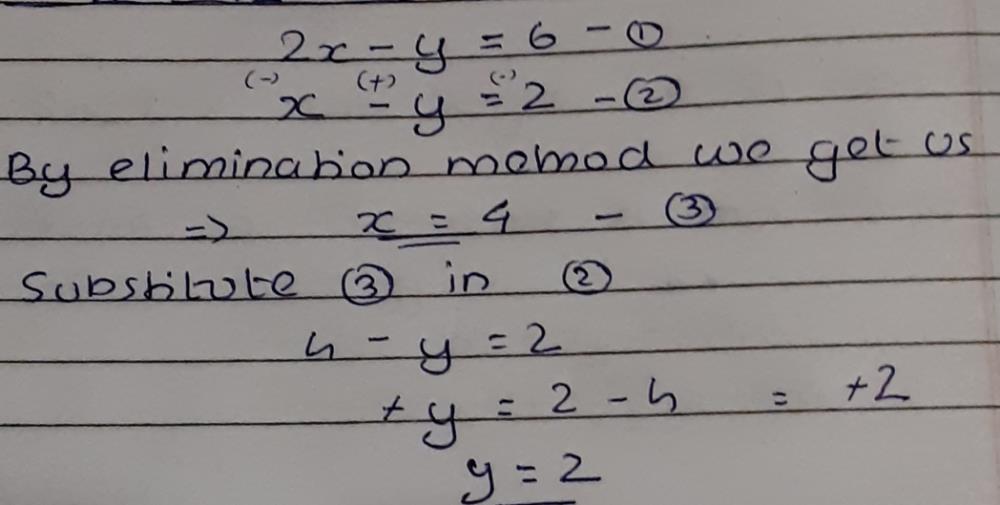 2x - y = 6 - ①
(-) (+) (-)
x - y = 2 - ②
By elimination memod we get us
=> x = 4 - ③
Substitute ③ in ②
4 - y = 2
+ y = 2 - 4 = +2
y = 2